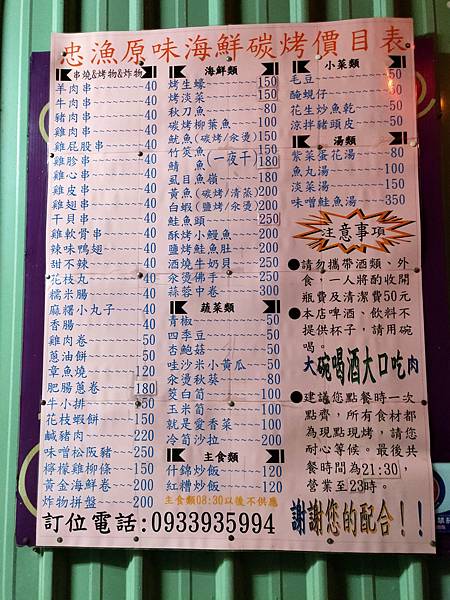 忠漁原味海鮮碳烤價目表
串燒&烤物&炸物
羊肉串 40
牛肉串 40
豬肉串 40
雞肉串 40
雞屁股串 40
雞胗串 40
雞心串 40
雞皮串 40
雞翅串 40
干貝串 40
雞軟骨串 40
辣味鴨翅 40
甜不辣 40
花枝丸 40
糯米腸 40
麻糬小丸子 40
香腸 40
雞肉卷 50
蔥油餅 50
章魚燒 120
肥腸蔥卷 180
牛小排
花枝蝦餅 150
鹹豬肉 220
味噌松阪豬 250
檸檬雞柳條 150
黃金海鮮卷 200
炸物拼盤 200
海鮮類
烤生蠔 150
烤淡菜 150
秋刀魚 80
碳烤柳葉魚 100
魷魚(碳烤/汆燙) 150
竹筴魚 150
鯖 魚(一夜干) 180
虱目魚嶺 180
黃魚(碳烤/清蒸) 200
白蝦(鹽烤/汆燙) 200
鮭魚頭 250
酥烤小鰻魚 200
鹽烤鮭魚肚 200
酒燒牛奶貝 250
汆燙佛手 250
蒜蓉中卷 300
蔬菜類
青椒 50
四季豆 50
杏鮑菇 50
哇沙米小黃瓜 50
汆燙秋葵 80
筊白筍 100
玉米筍 100
就是愛香菜 100
冷筍沙拉 200
主食類
什錦炒飯 120
紅糟炒飯 120
主食類08:30以後不供應
小菜類
毛豆 50
醃蜆仔 50
花生炒魚乾 50
涼拌豬頭皮 50
湯類
紫菜蛋花湯 80
魚丸湯 100
淡菜湯 150
味噌鮭魚湯 350
注意事項
●請勿攜帶酒類、外
食,一人將酌收開
瓶費及清潔費50元
●本店啤酒、飲料不
提供杯子,請用碗
喝。
大碗喝酒大口吃肉
●建議您點餐時一次
點齊,所有食材都
為現點現烤,請您
耐心等候。最後共
餐時間為21:30,
營業至23時。
謝謝您的配合!!
訂位電話:0933935994